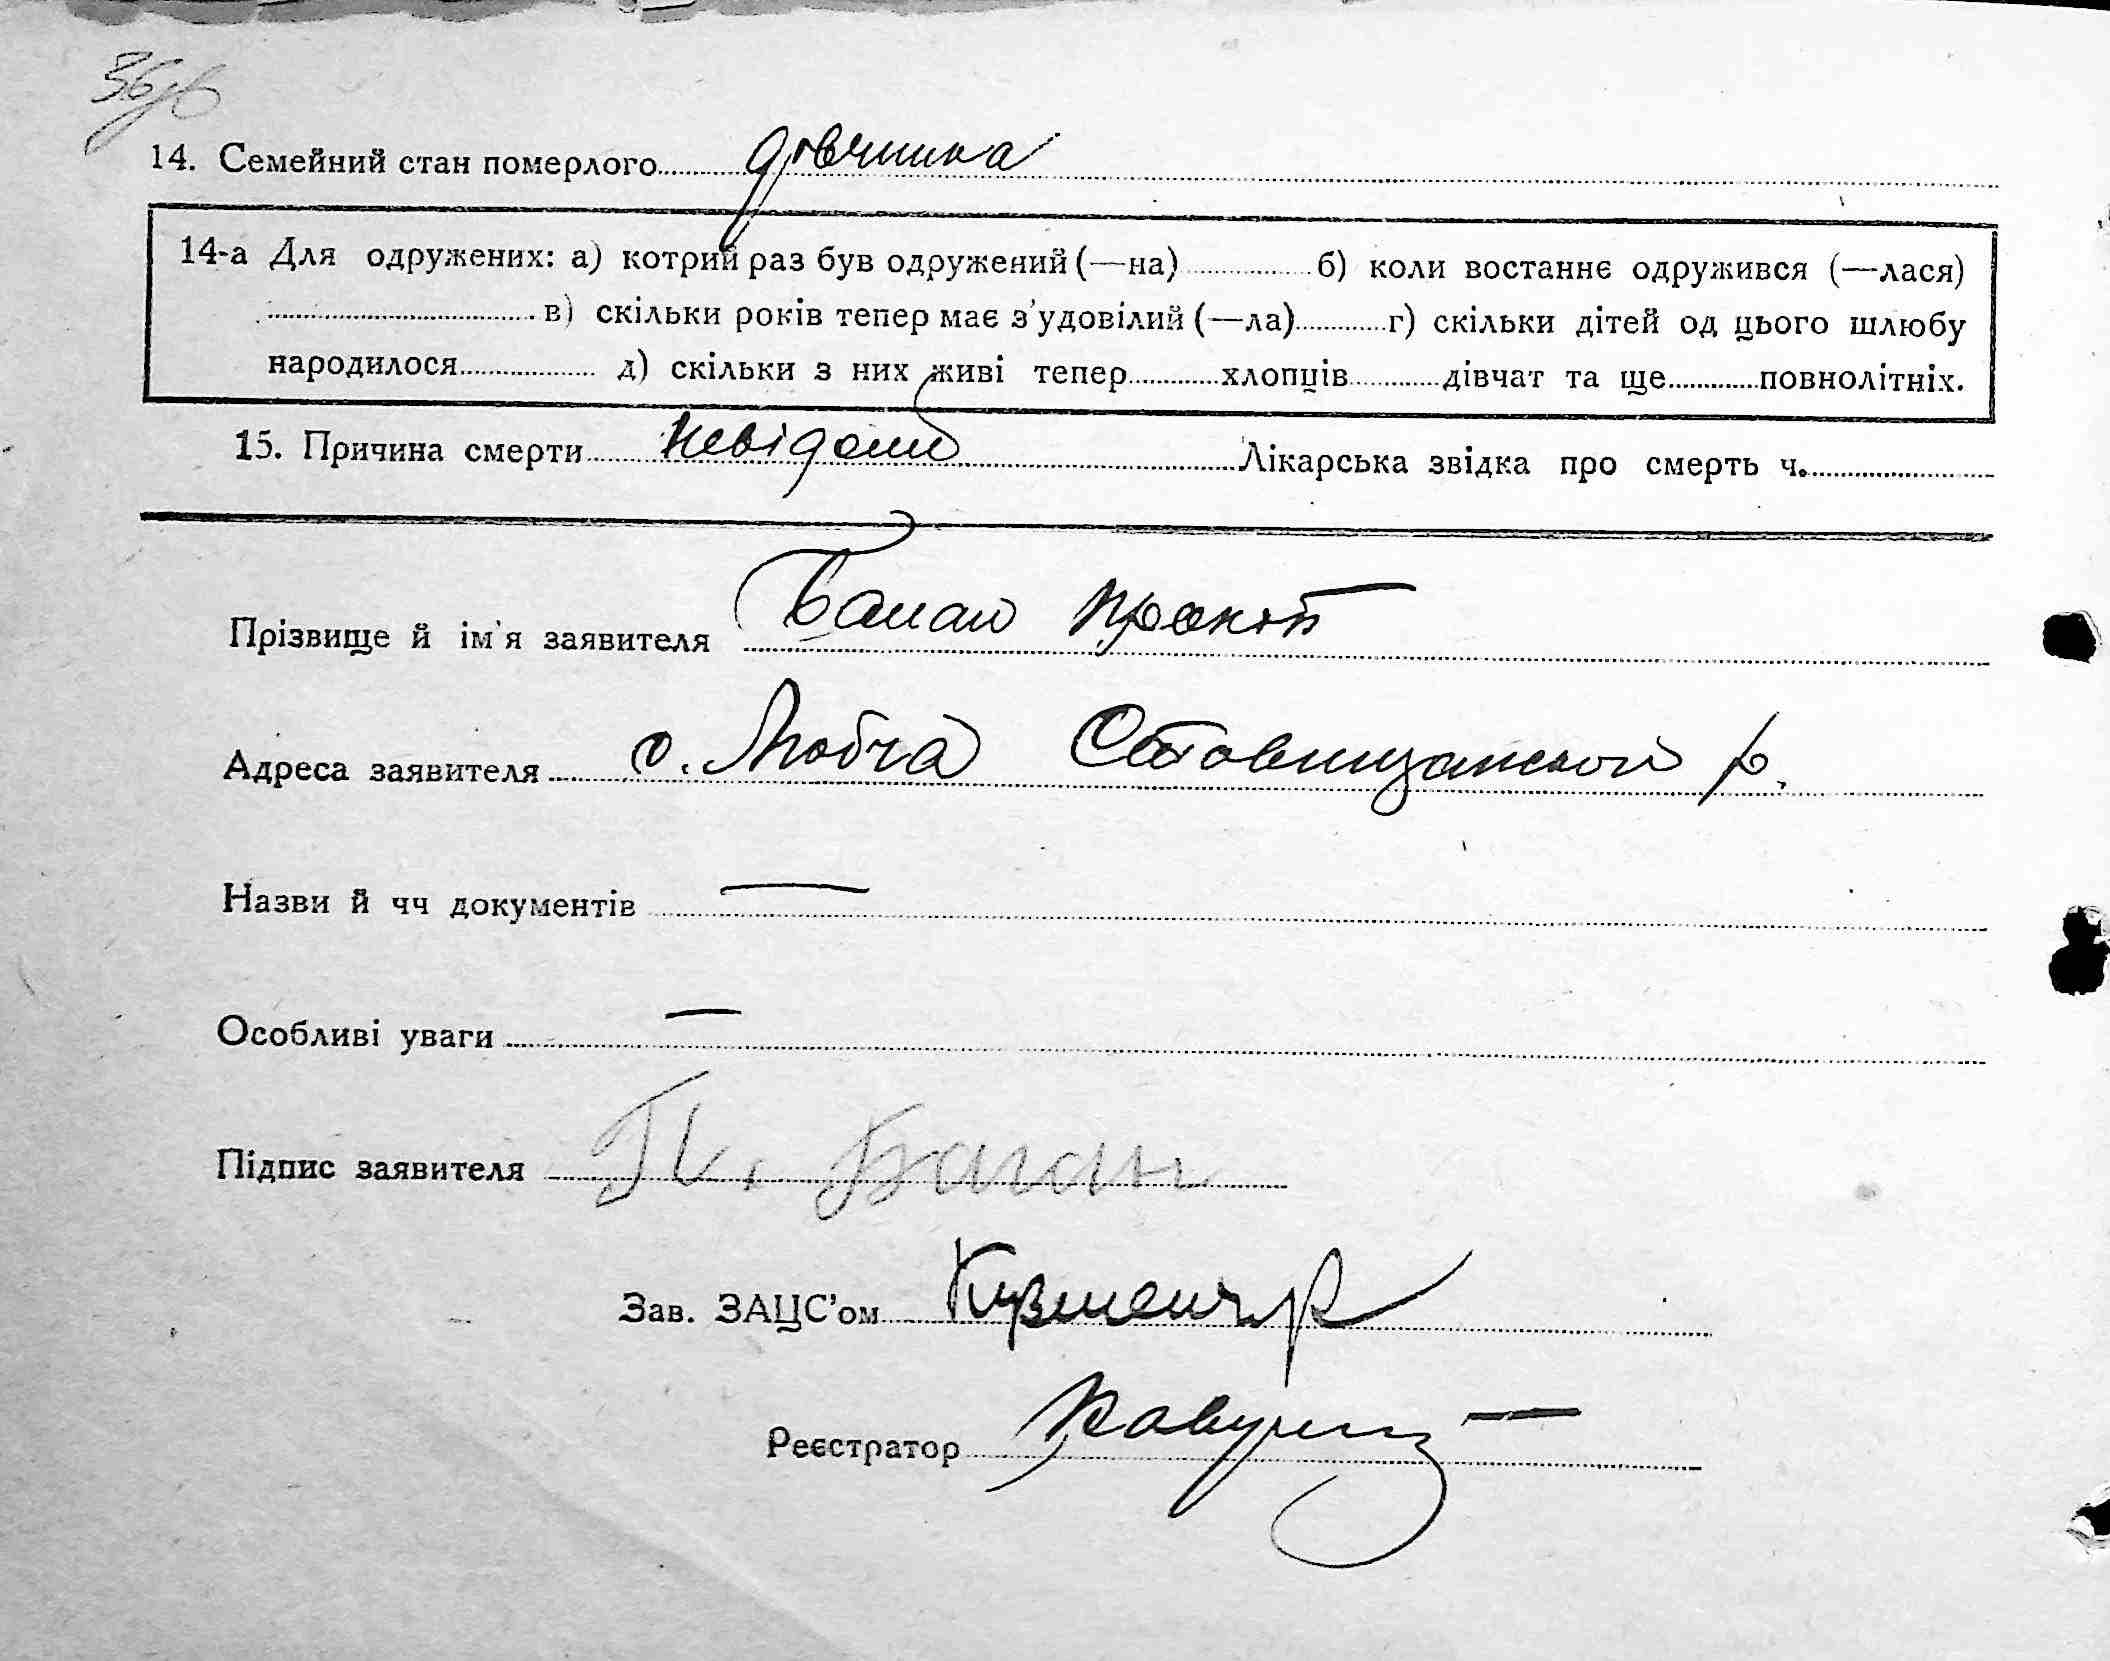 36зв
14. Семейний стан померлого дівчинка
14-а Для одружених: а) котрий раз був одружений (—на) б) коли востаннє одружився (—лася)
в) скільки років тепер має з'удовілий (—ла) г) скільки дітей од цього шлюбу
народилося д) скільки з них живі тепер хлопців дівчат та ще повнолітніх.
15. Причина смерти невідома Лікарська звідка про смерть ч.
Прізвище й ім'я заявителя Баган Прокіп
Адреса заявителя с. Любча Ставищанской р.
Назви й чч документів —
Особливі уваги —
Підпис заявителя П. Баган
Зав. ЗАЦС'ом
Реєстратор